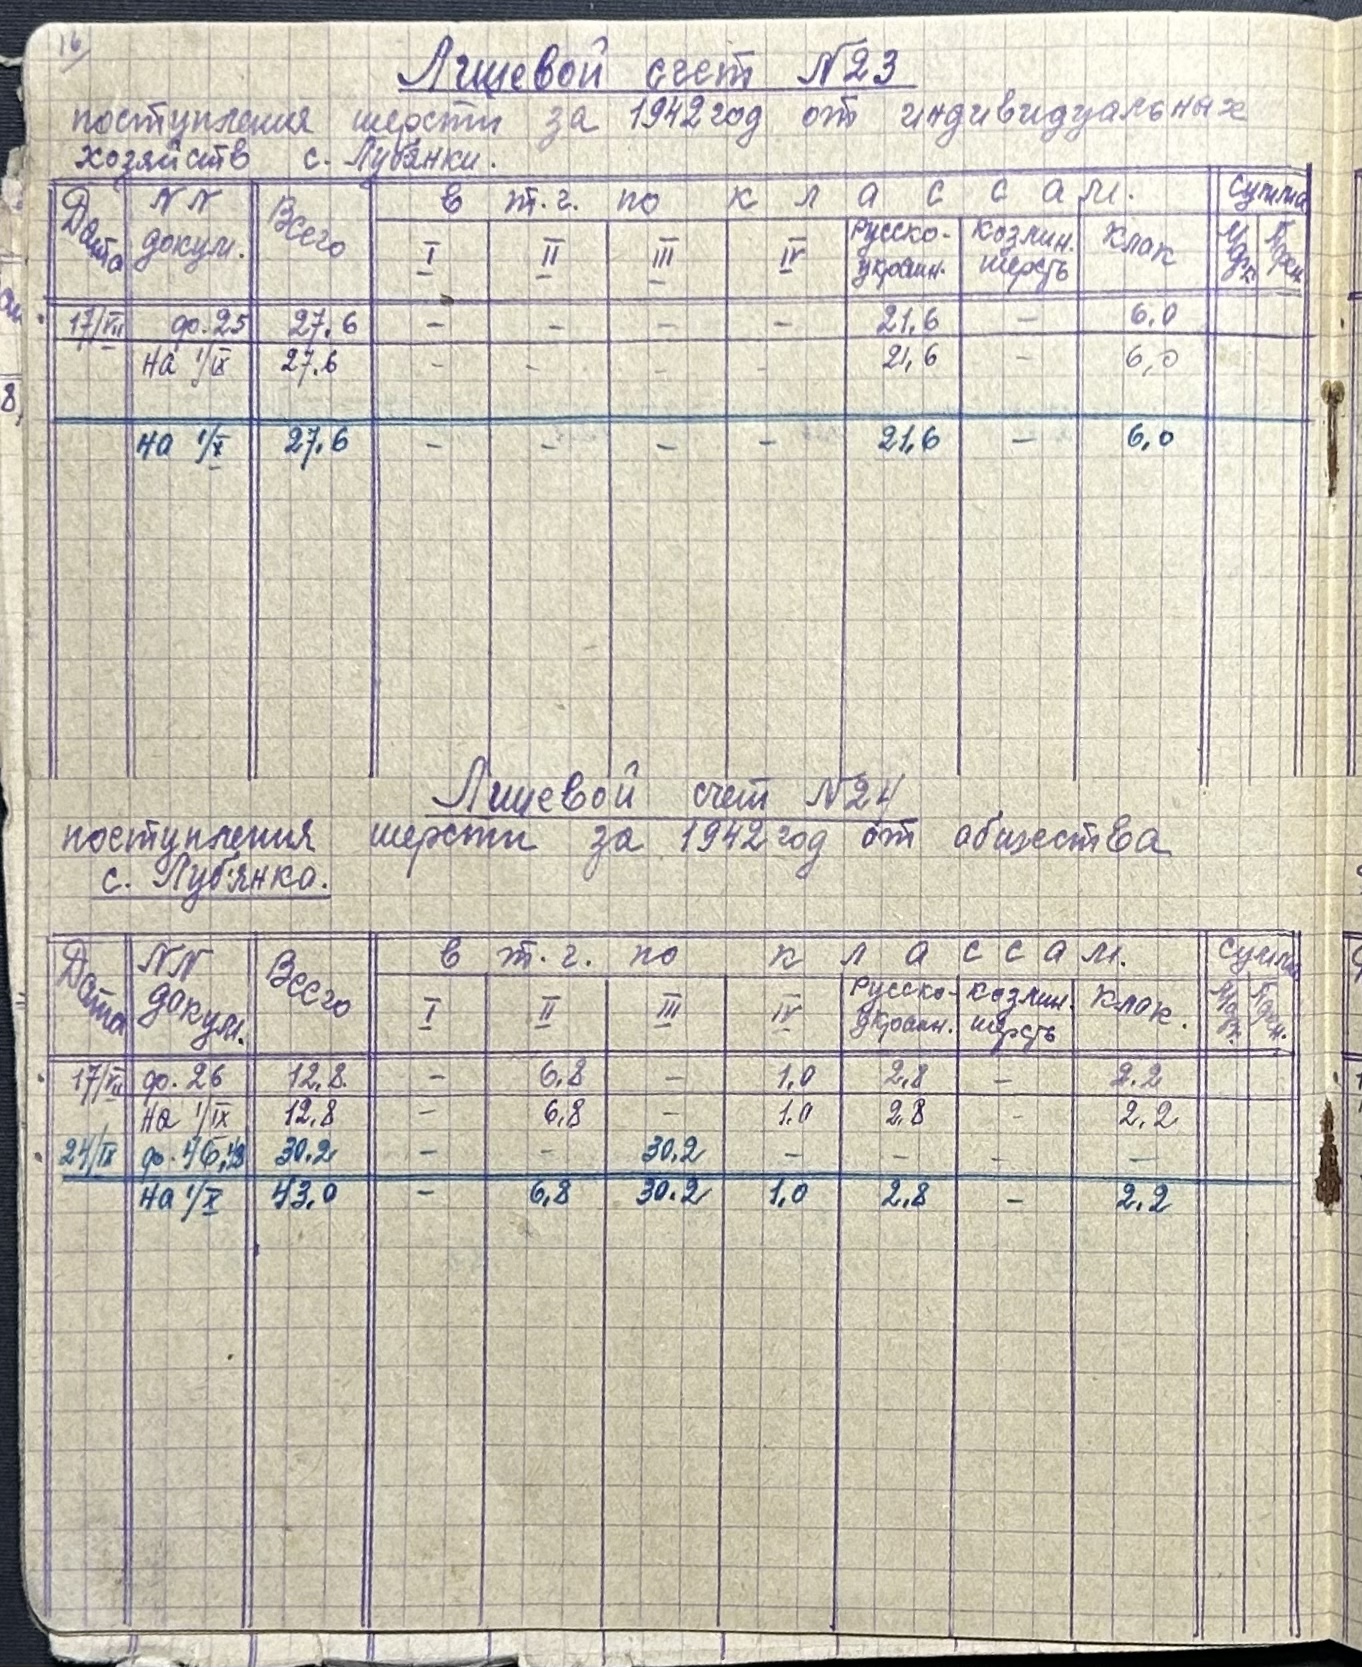 16
Лицевой счет №23
поступления шерсти за 1942 год от индивидуальных
хозяйств с. Лубянки.
Дата NN докум. Всего в т.ч. по классам. Сумма
I II III IV Русско-украин. Козлин. шерсть Клок
17/VIII ф. 25 27.6 – – – – 21,6 – 6,0
на 1/IX 27.6 – – – – 21,6 – 6,0
на 1/X 27.6 – – – – 21,6 – 6,0
Лицевой счет №24
поступления шерсти за 1942 год от общества
с. Луб'янка.
Дата NN докум. Всего в т.ч. по классам. Сумма
I II III IV Русско-украин. Козлин. шерсть Клок.
17/VIII ф. 26 12.8 – 6,8 – 1.0 2,8 – 2.2
на 1/IX 12.8 – 6,8 – 1.0 2,8 – 2,2
24/IX ф. 30.2 – – 30.2 – – – –
на 1/X 43,0 – 6,8 30.2 1.0 2,8 – 2.2